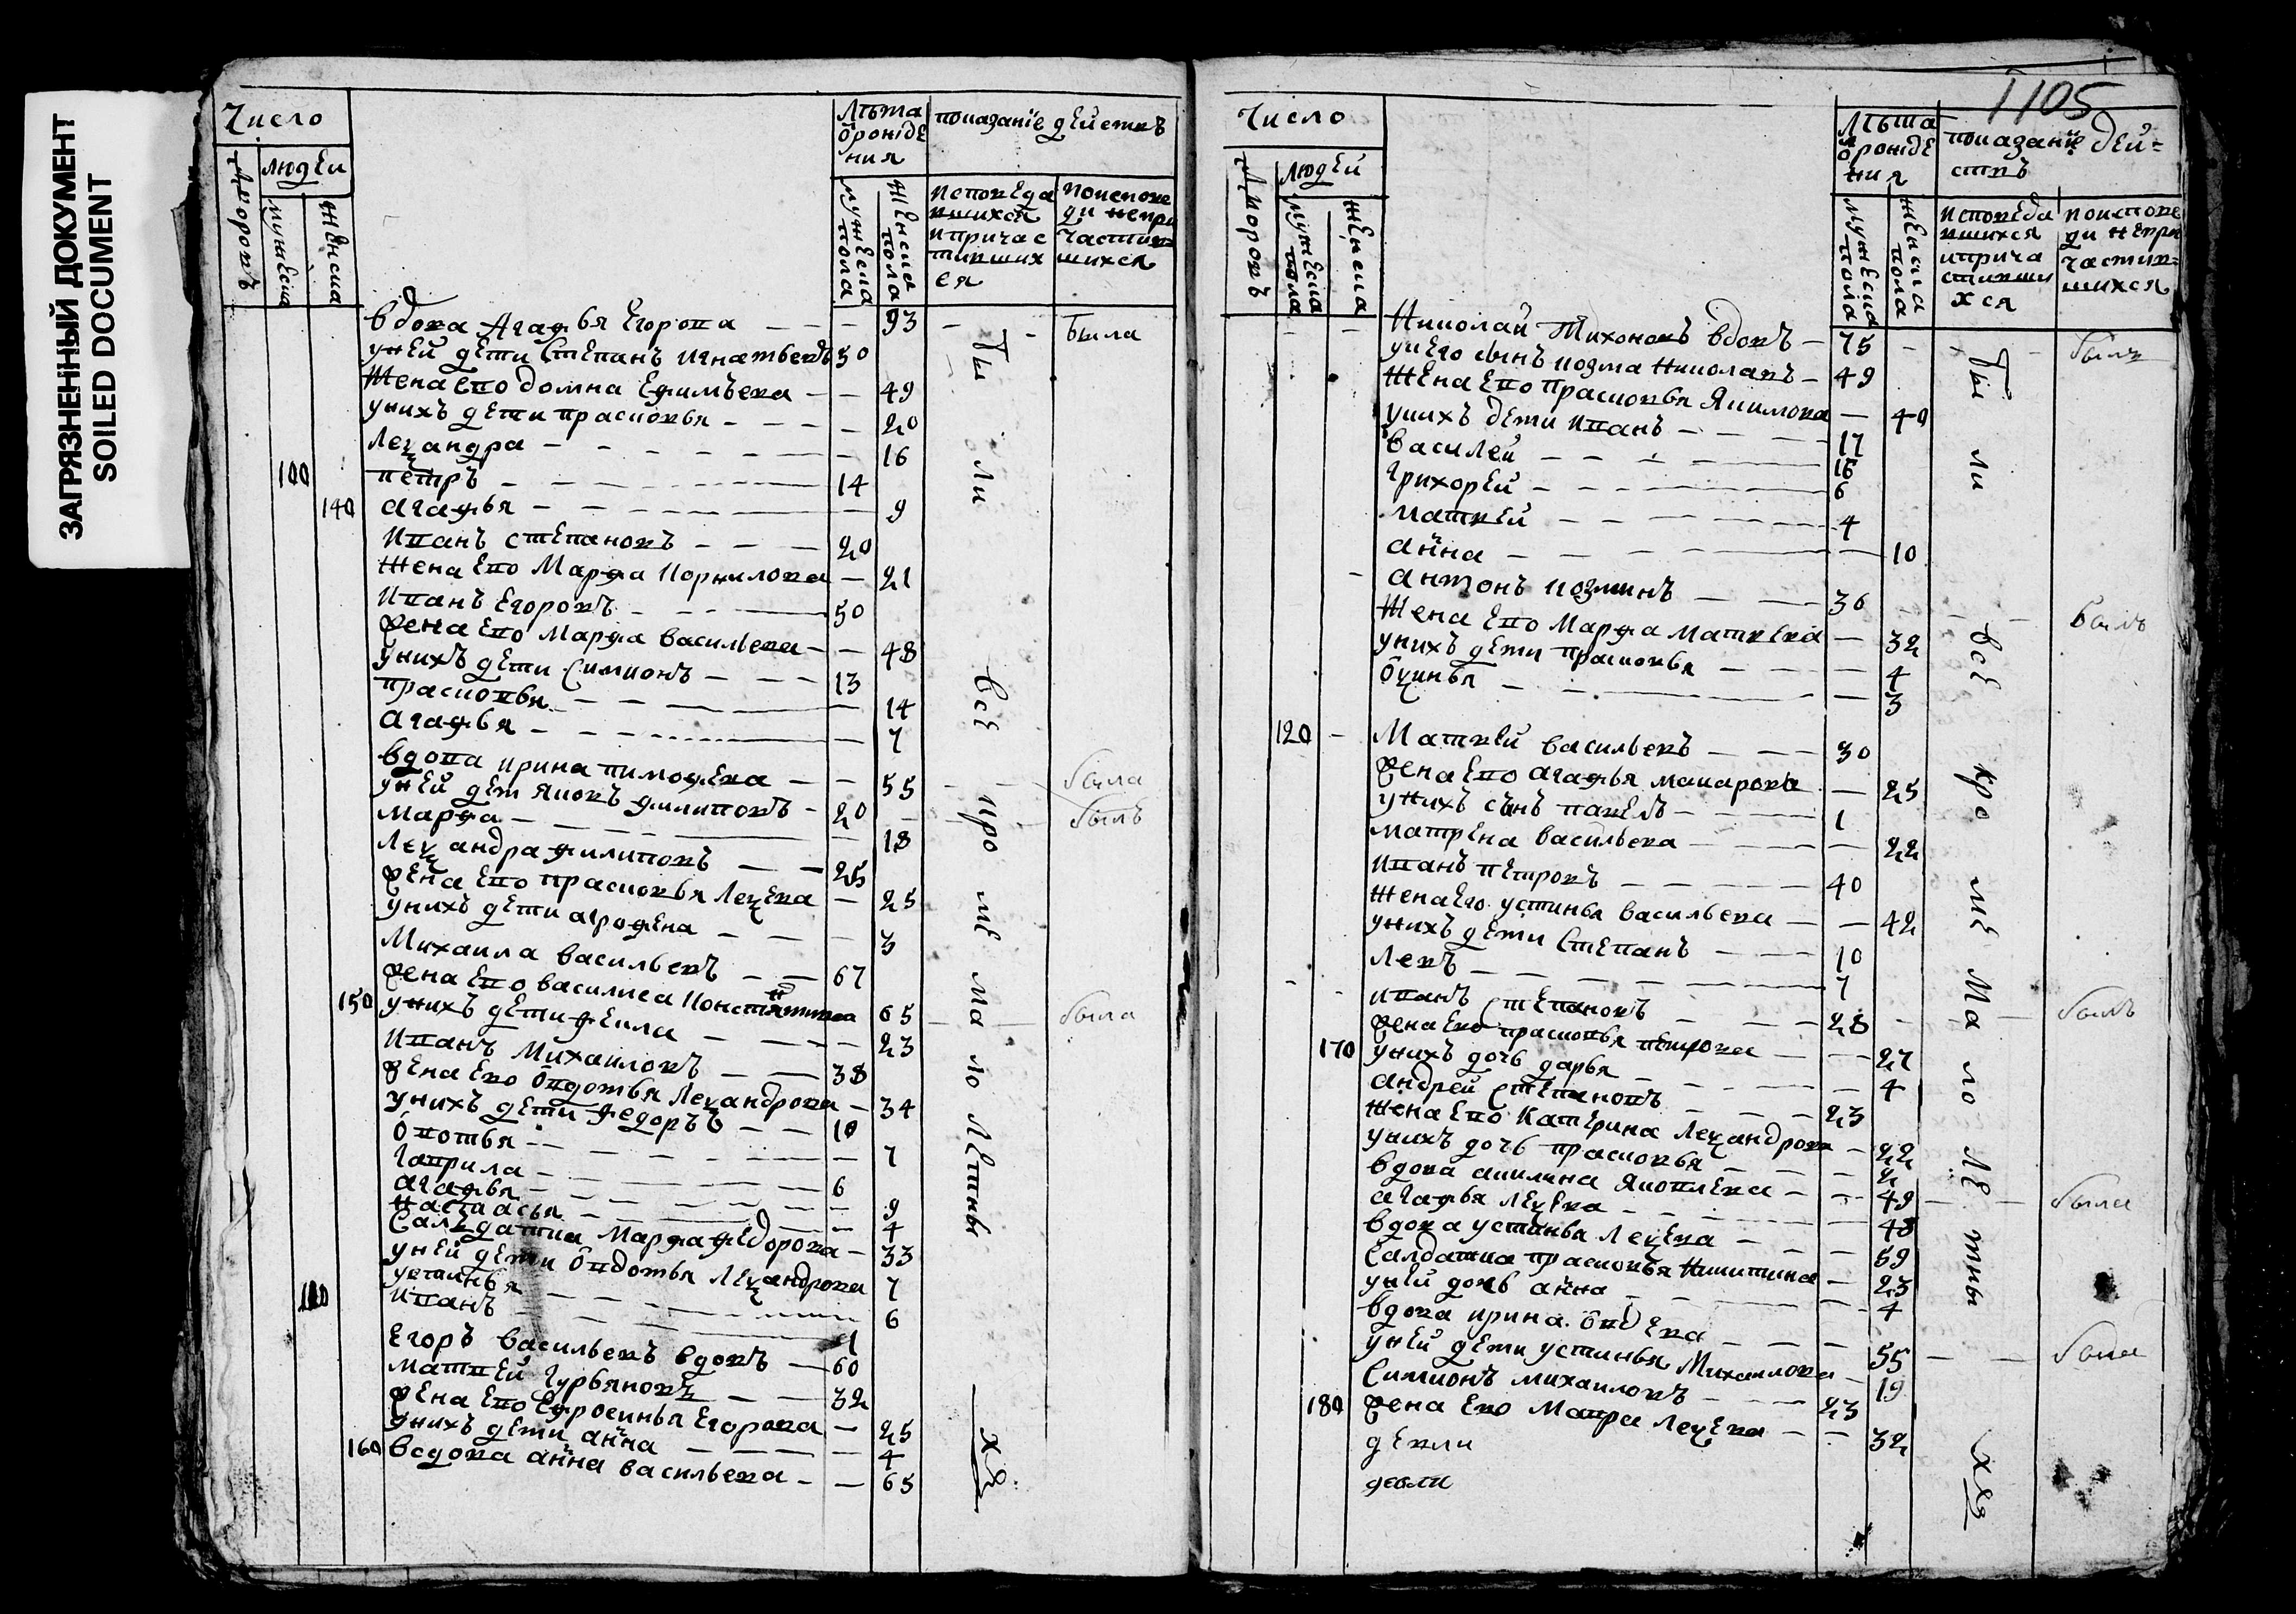 ЗАГРЯЗНЕННЫЙ ДОКУМЕНТ
SOILED DOCUMENT
Число
людеи
дворовъ
мужеска
женска
Лѣта
ѿ рожде
ния
мужеска
пола
женска
пола
показанїе действъ
исповеда
вшихся
и причас
тивших
ся
по испове
ди непри
частив
шихся
вдова Агафья Егорова — 93 — была
у ней дети Степанъ игнатьевъ 50
жена ево домна Ефимьева — 49
у нихъ дети прасковья — 20
Леѯандра — 16
100 петръ — 14
140 агафья — 9
иванъ степановъ — 20
жена ево Марфа корнилова — 21
иванъ Егоровъ — 50
жена ево Марфа васильева — 48
у нихъ дети Симионъ — 13
прасковья — 14
агафья — 7
вдова ирина тимофева — 55 — была
у ней дет яковъ филиповъ — 20 — былъ
марфа — 18
Леѯандра филиповъ — 25
жена ево прасковья Леѯева — 25
у нихъ дети агрофена — 3
Михаила васильевъ — 67
жена ево василиса констянтинва 65 — была
150 у нихъ дети фекла — 23
иванъ Михаиловъ — 38
жена ево ѿвдотья Леѯандрова — 34
у нихъ дети федоръ — 10
ѿвдотья — 7
гаврила — 6
агафья — 9
настасья — 4
Салдатка Марфа федорова — 33
у ней дети ѿвдотья Леѯандрова 7
устинья — 6
110 иванъ — 1
Егоръ васильевъ вдовъ — 60
матвей Гурьяновъ — 32
жена ево Ефросинья Егорова — 25
у нихъ дети анна — 4
160 вдова анна васильева — 65
бы ли всѣ кро мѣ ма ло лѣтны хъ
1105
Число
людей
дворовъ
мужеска
пола
женска
Лѣта
ѿ рожде
ния
мужеска
пола
женска
пола
показанїе дей=
ствъ
исповеда
вшихся
и прича
стивши
хся
по испове
ди непри
частив=
шихся
Николай Тихоновъ вдовъ — 75 — былъ
у него сынъ козма николавъ — 49
жена ево прасковья Якимова — 40
у нихъ дети иванъ — 17
василей — 16
григорей — 6
матвей — 4
анна — 10
антонъ козминъ — 36 — былъ
жена ево Марфа матвева — 32
у нихъ дети прасковья — 4
ѿѯинья — 3
120 Матвей васильевъ — 30
жена ево агафья макарова — 25
у нихъ сынъ павелъ — 1
матрена васильева — 22
иванъ петровъ — 40
жена его устинья васильева — 42
у нихъ дети Степанъ — 10
левъ — 7
иванъ Степановъ — 28 — былъ
жена ево прасковья петрова — 27
170 у нихъ дочь дарья — 4
андрей Степановъ — 23
жена ево Катерина Леѯандрова — 22
у нихъ дочь прасковья — 2
вдова акилина Яковлева — 49 — была
агафья Леѯева — 48
вдова устинья Леѯева — 59
салдатка прасковья никитина — 23
у ней дочь анна — 4
вдова ирина ѿвдева — 55 — была
у ней дети устинья Михаилова — 19
Симионъ михаиловъ — 23
180 жена ево Мавра Леѯева — 32
девли
девли
бы ли всѣ кро мѣ ма ло лѣ тны хъ